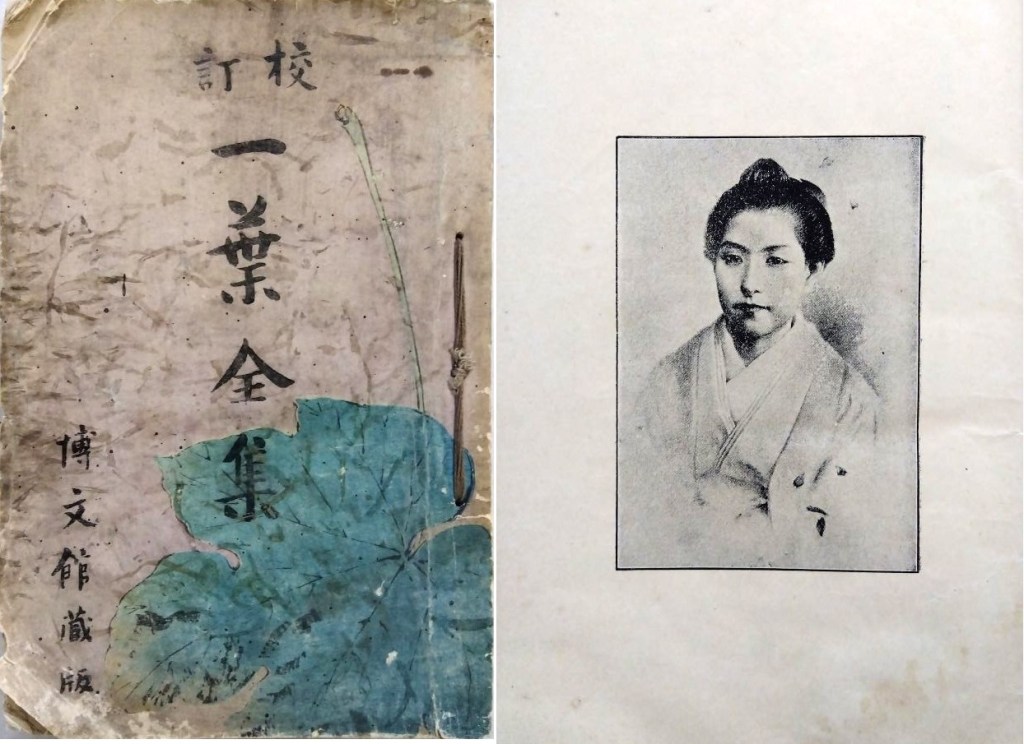 校訂
一葉全集
博文館藏版